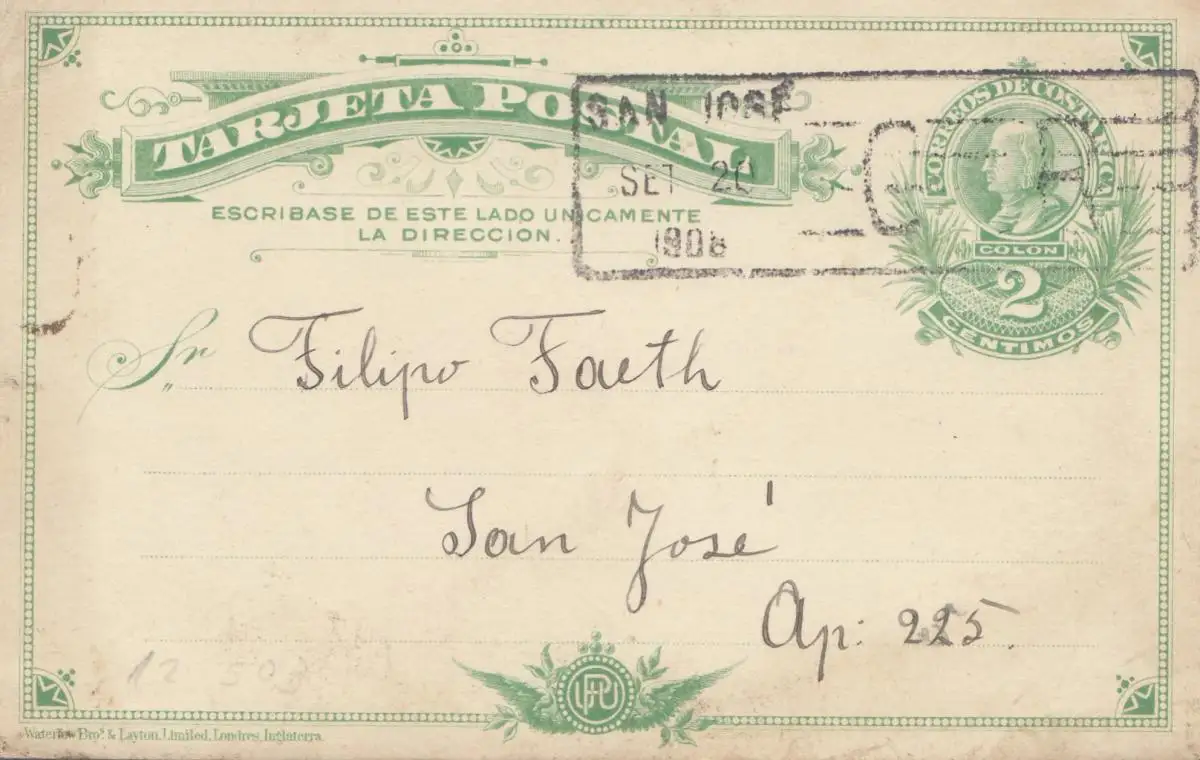 TARJETA POSTAL
ESCRIBASE DE ESTE LADO UNICAMENTE
LA DIRECCION.
SAN JOSÉ
SET 20
1908
C R
CORREOS DE COSTA RICA
COLON
2
CENTIMOS
Sr Filipo Faeth
San José
Ap: 225.
UPU
12 503
Waterlow Bros. & Layton, Limited, Londres, Inglaterra.